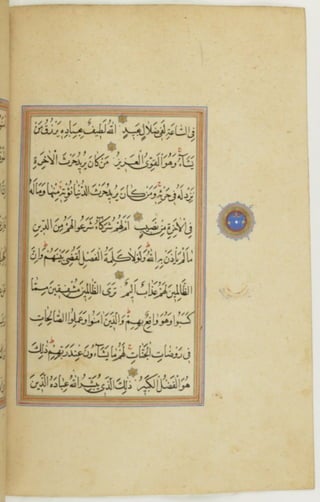 فِي السَّاعَةِ لَفِي ضَلَالٍ بَعِيدٍ اَللّٰهُ لَطِيفٌ بِعِبَادِهِ يَرْزُقُ مَنْ
يَشَآءُ وَهُوَ الْقَوِىُّ الْعَزِيزُ مَنْ كَانَ يُرِيدُ حَرْثَ الْاٰخِرَةِ
نَزِدْ لَهُ فِى حَرْثِهِ وَمَنْ كَانَ يُرِيدُ حَرْثَ الدُّنْيَا نُؤْتِهِ مِنْهَا وَمَالَهُ
فِى الْاٰخِرَةِ مِنْ نَصِيبٍ اَمْ لَهُمْ شُرَكَآءُ شَرَعُوا لَهُمْ مِنَ الدِّينِ
مَالَمْ يَأْذَنْ بِهِ اللّٰهُ وَلَوْلَا كَلِمَةُ الْفَصْلِ لَقُضِىَ بَيْنَهُمْ وَاِنَّ
الظَّالِمِينَ لَهُمْ عَذَابٌ اَلِيمٌ تَرَى الظَّالِمِينَ مُشْفِقِينَ مِمَّا
كَسَبُوا وَهُوَ وَاقِعٌ بِهِمْ وَالَّذِينَ اٰمَنُوا وَعَمِلُوا الصَّالِحَاتِ
فِى رَوْضَاتِ الْجَنَّاتِ لَهُمْ مَا يَشَآءُونَ عِنْدَ رَبِّهِمْ ذٰلِكَ
هُوَ الْفَضْلُ الْكَبِيرُ ذٰلِكَ الَّذِى يُبَشِّرُ اللّٰهُ عِبَادَهُ الَّذِينَ